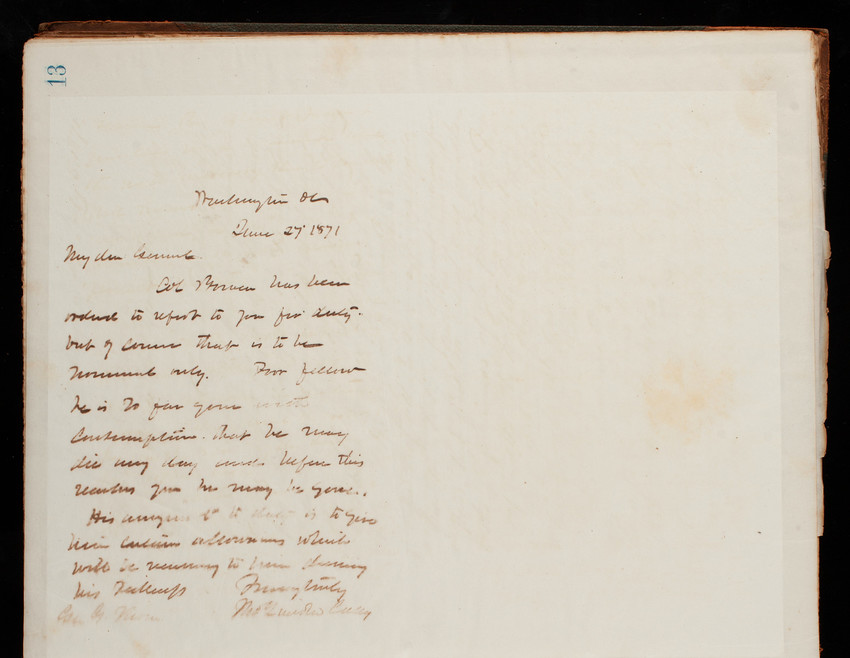 13
Washington DC
June 27 1871
My dear General.
Col Bowen has been
ordered to report to you for duty.
but of course that is to be
nominal only. Poor fellow
he is so far gone with
Consumption. that he may
die any day and before this
reaches you he may be gone.
His to duty is to give
him certain allowances which
will be necessary to him during
his illness Very truly
Thos Lincoln Casey
Gen